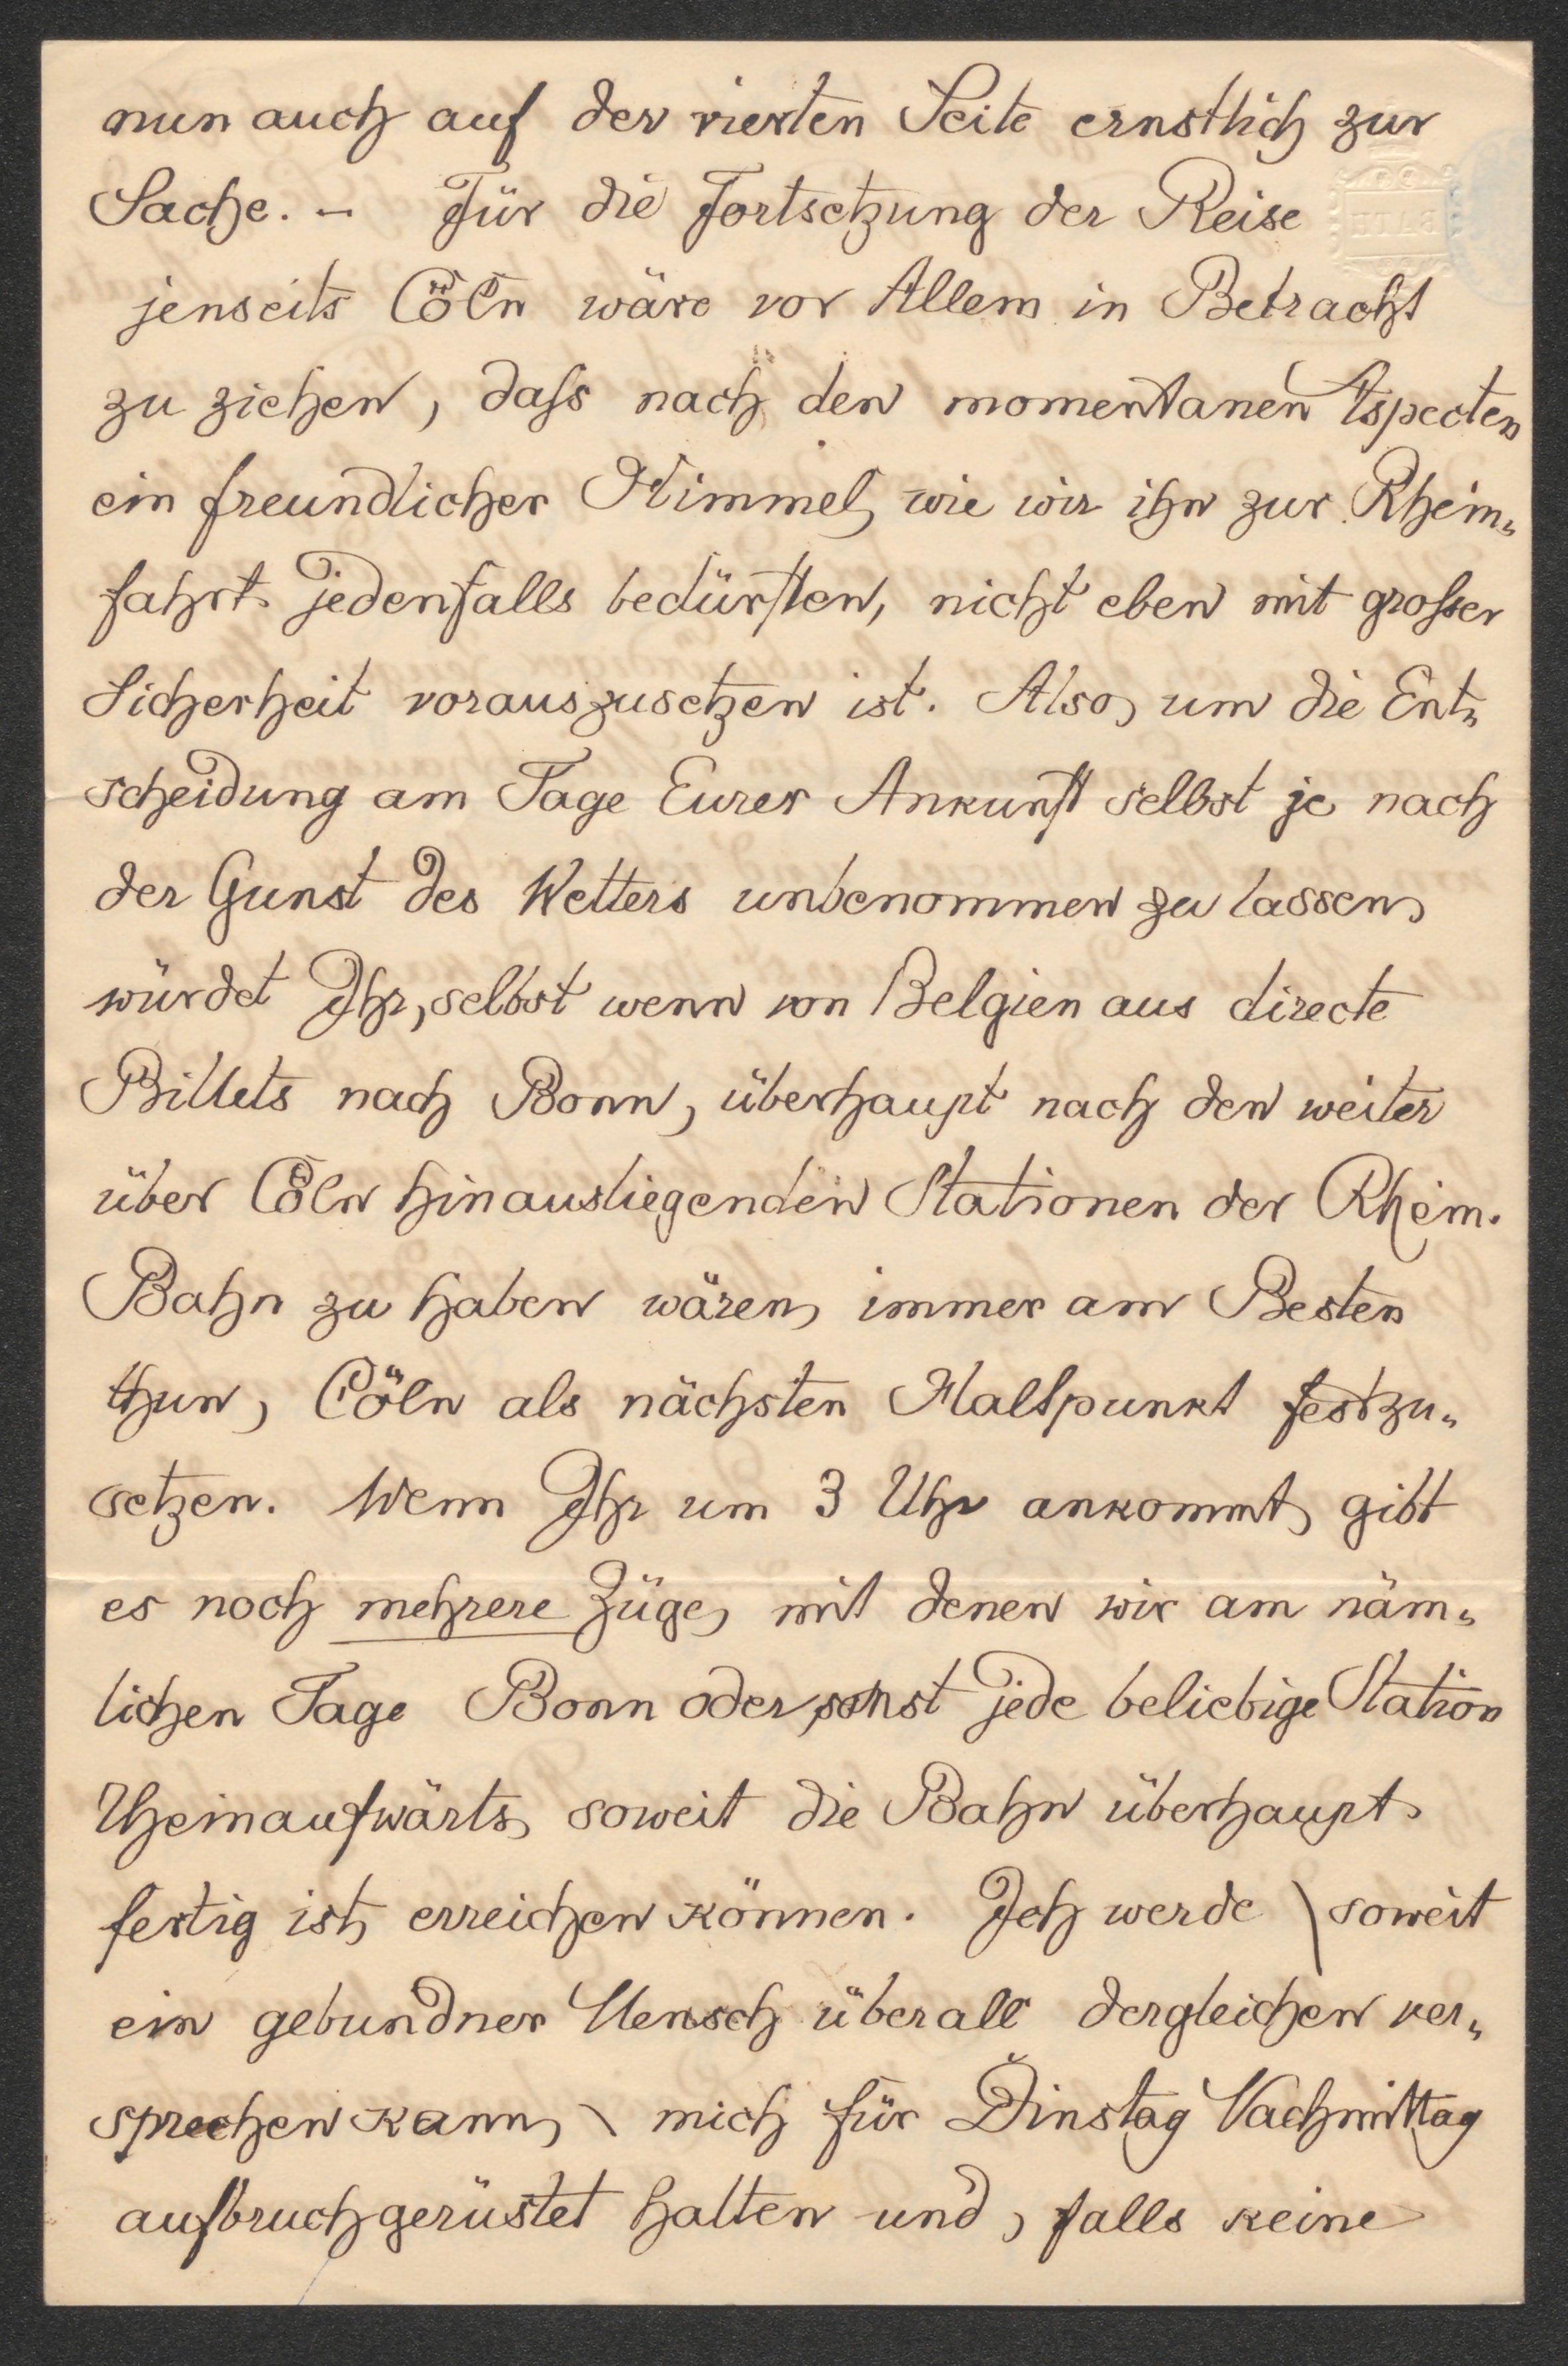 nun auch auf der vierten Seite ernstlich zur
Sache. – Für die Fortsetzung der Reise
BATH
jenseits Cöln wäre vor Allem in Betracht
zu ziehen, dass nach den momentanen Aspecten
ein freundlicher Himmel, wie wir ihn zur Rhein-
fahrt jedenfalls bedürften, nicht eben mit grosser
Sicherheit vorauszusetzen ist. Also, um die Ent-
scheidung am Tage Eurer Ankunft selbst je nach
der Gunst des Wetters unbenommen zu lassen,
würdet Ihr, selbst wenn von Belgien aus directe
Billets nach Bonn, überhaupt nach den weiter
über Cöln hinausliegenden Stationen der Rhein-
Bahn zu haben wären, immer am Besten
thun, Cöln als nächsten Haltpunkt festzu-
setzen. Wenn Ihr um 3 Uhr ankommt, gibt
es noch mehrere Züge, mit denen wir am näm-
lichen Tage Bonn oder sonst jede beliebige Station
Rheinaufwärts, soweit die Bahn überhaupt
fertig ist, erreichen können. Ich werde \ soweit
ein gebundner Mensch überall dergleichen ver-
sprechen kann, \ mich für Dinstag Nachmittag
aufbruchgerüstet halten und, falls keine